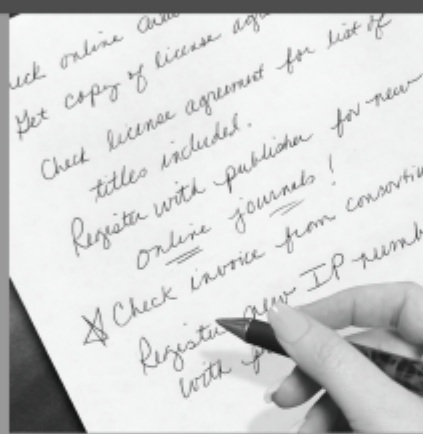 online
Get copy of license
Check license agreement for list of
titles included.
Register with publisher for new
online journals!
Check invoice from
Register new IP
with